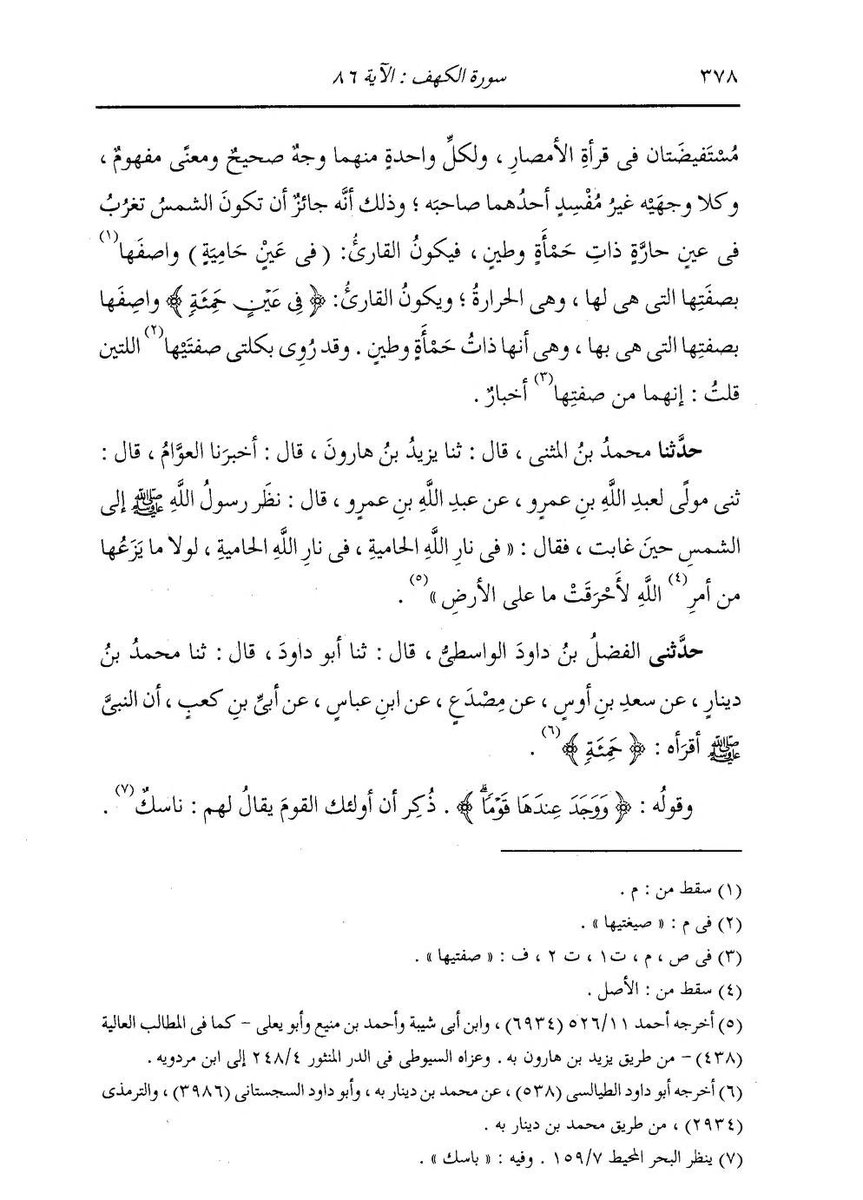 ٣٧٨ سورة الكهف : الآية ٨٦
مُسْتَفيضَتان فى قرأةِ الأمصارِ ، ولكلِّ واحدةٍ منهما وجهٌ صحيحٌ ومعنًى مفهومٌ ،
وكلا وجهَيْه غيرُ مُفْسِدٍ أحدُهما صاحبَه ؛ وذلك أنَّه جائزٌ أن تكونَ الشمسُ تغرُبُ
فى عينٍ حارَّةٍ ذاتِ حَمْأَةٍ وطينٍ ، فيكونُ القارئُ: ( فى عَيْنٍ حَامِيَةٍ ) واصفَها(١)
بصفَتِها التى هى لها ، وهى الحرارةُ ؛ ويكونُ القارئُ: ﴿ فِي عَيْنٍ حَمِئَةٍ ﴾ واصِفَها
بصفتِها التى هى بها ، وهى أنها ذاتُ حَمْأَةٍ وطينٍ . وقد رُوِى بكلتى صفتَيْها(٢) اللتين
قلتُ : إنهما من صفتِها(٣) أخبارٌ .
حدَّثنا محمدُ بنُ المثنى ، قال : ثنا يزيدُ بنُ هارونَ ، قال : أخبرَنا العوَّامُ ، قال :
ثنى مولًى لعبدِ اللَّهِ بنِ عمرٍو ، عن عبدِ اللَّهِ بنِ عمرٍو ، قال : نظَر رسولُ اللَّهِ ﷺ إلى
الشمسِ حينَ غابت ، فقال : « فى نارِ اللَّهِ الحاميةِ ، فى نارِ اللَّهِ الحاميةِ ، لولا ما يَزَعُها
من أمرِ(٤) اللَّهِ لأَحْرَقَتْ ما على الأرضِ »(٥) .
حدَّثنى الفضلُ بنُ داودَ الواسطىُّ ، قال : ثنا أبو داودَ ، قال : ثنا محمدُ بنُ
دينارٍ ، عن سعدِ بنِ أوسٍ ، عن مِصْدَعٍ ، عن ابنِ عباسٍ ، عن أبىِّ بنِ كعبٍ ، أن النبىَّ
ﷺ أقرَأه : ﴿ حَمِئَةٍ ﴾(٦) .
وقولُه : ﴿ وَوَجَدَ عِندَهَا قَوْمًاۗ ﴾ . ذُكِر أن أولئك القومَ يقالُ لهم : ناسكٌ(٧) .
(١) سقط من : م .
(٢) فى م : « صيغتيها » .
(٣) فى ص ، م ، ت١ ، ت ٢ ، ف : « صفتيها » .
(٤) سقط من : الأصل .
(٥) أخرجه أحمد ٥٢٦/١١ (٦٩٣٤) ، وابن أبى شيبة وأحمد بن منيع وأبو يعلى - كما فى المطالب العالية
(٤٣٨) - من طريق يزيد بن هارون به . وعزاه السيوطى فى الدر المنثور ٢٤٨/٤ إلى ابن مردويه .
(٦) أخرجه أبو داود الطيالسى (٥٣٨) ، عن محمد بن دينار به ، وأبو داود السجستانى (٣٩٨٦) ، والترمذى
(٢٩٣٤) ، من طريق محمد بن دينار به .
(٧) ينظر البحر المحيط ١٥٩/٧ . وفيه : « باسك » .